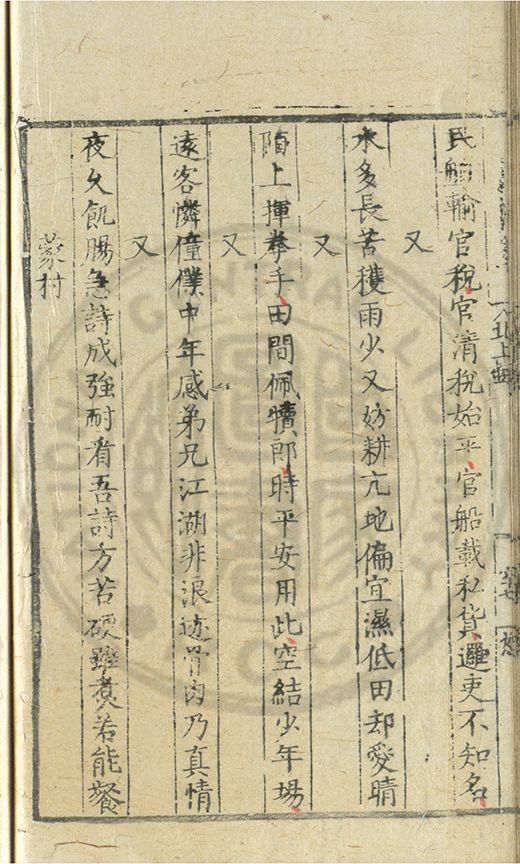 民船輸官稅官清稅始平官船載私貨邏吏不知名
又
水多長苦穫雨少又妨耕亢地偏宜濕低田却愛晴
又
陌上揮拳手田間佩犢郎時平安用此空結少年場
又
遠客憐僮僕中年感弟兄江湖非浪迹骨肉乃真情
又
夜久飢腸急詩成強耐看吾詩方苦硬雖煑若能餐
蒙村